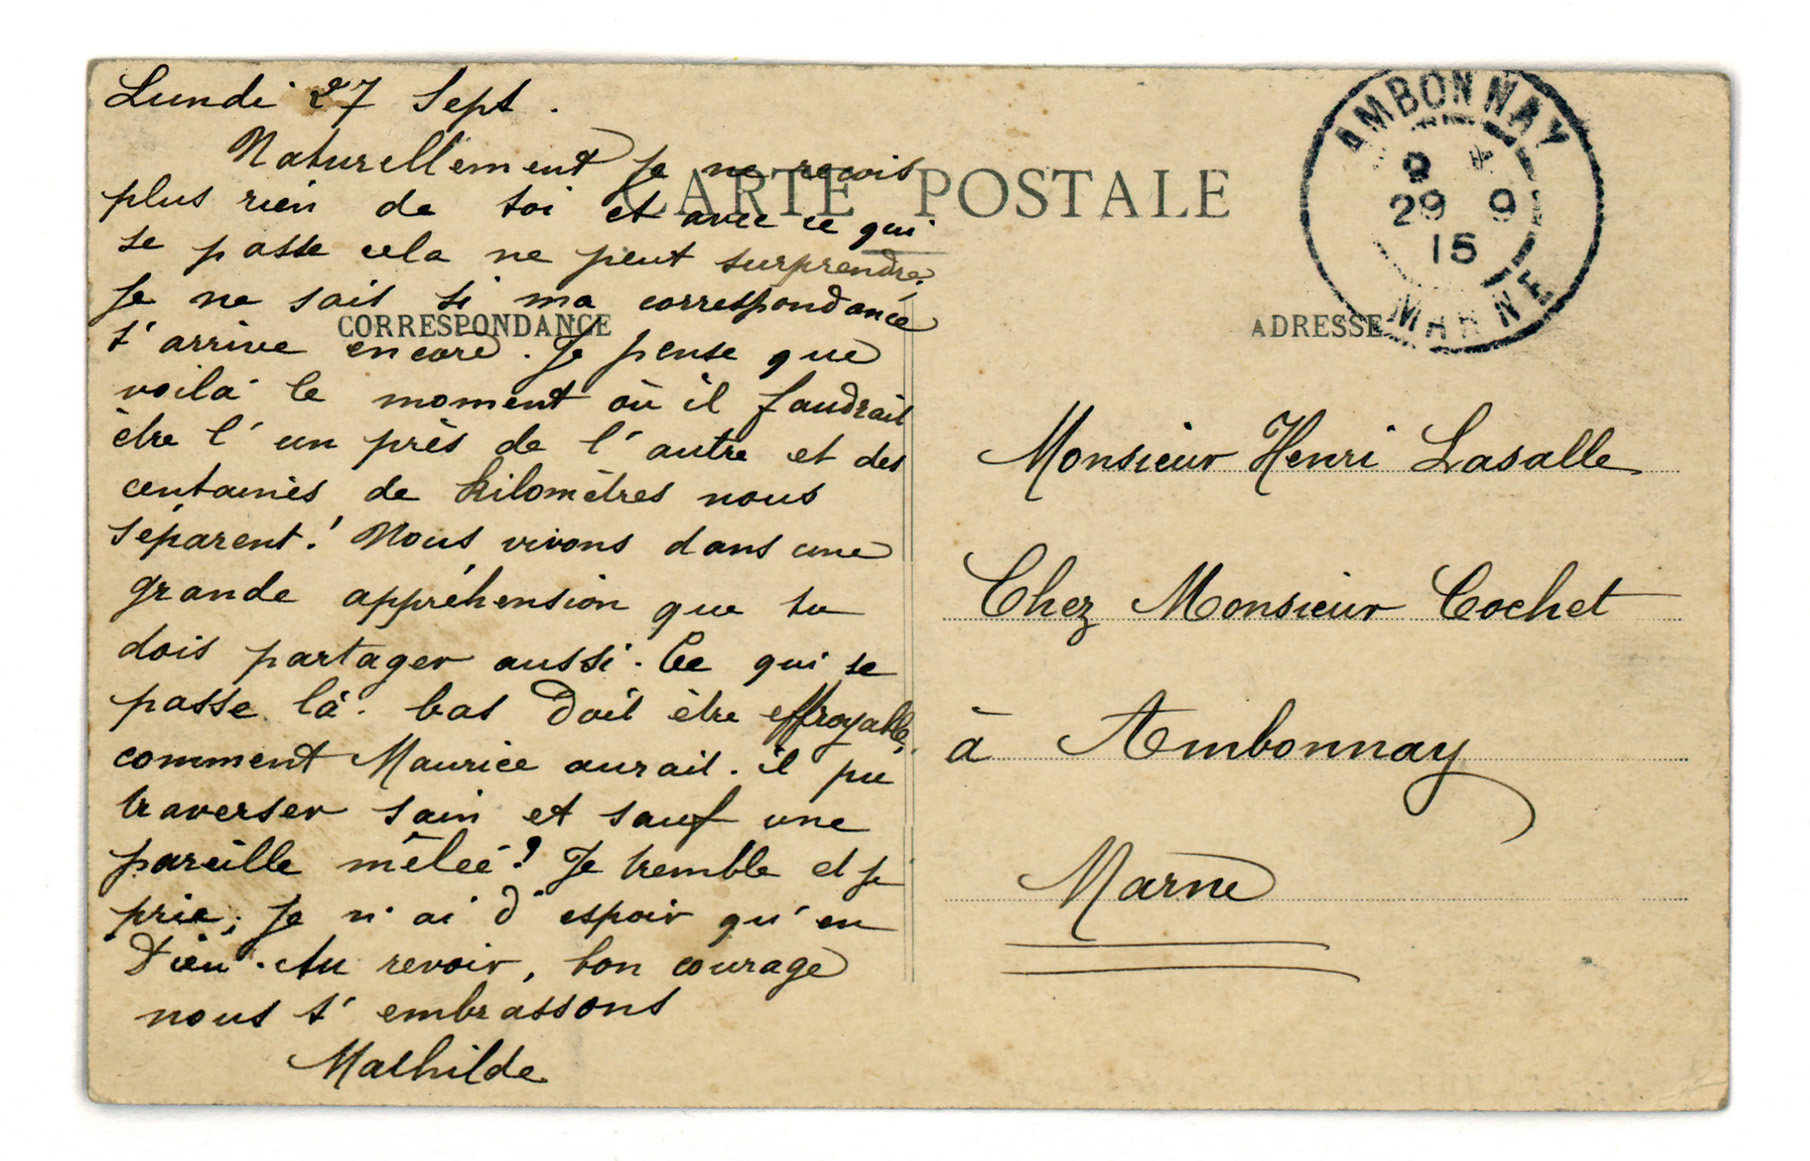 Lundi 27 Sept.
Naturellement je ne reçois
plus rien de toi et avec ce qui
se passe cela ne peut surprendre.
Je ne sais si ma correspondance
t'arrive encore. Je pense que
voilà le moment où il faudrait
être l'un près de l'autre et des
centaines de kilomètres nous
séparent! Nous vivons dans une
grande appréhension que tu
dois partager aussi. Ce qui se
passe là-bas doit être effroyable,
comment Maurice aurait-il pu
traverser sain et sauf une
pareille mêlée? Je tremble et je
prie, je n'ai d'espoir qu'en
Dieu. Au revoir, bon courage
nous t'embrassons
Mathilde
CARTE POSTALE
CORRESPONDANCE
ADRESSE
AMBONNAY
9 *
29 9
15
MARNE
Monsieur Henri Lasalle
Chez Monsieur Cochet
à Ambonnay
Marne